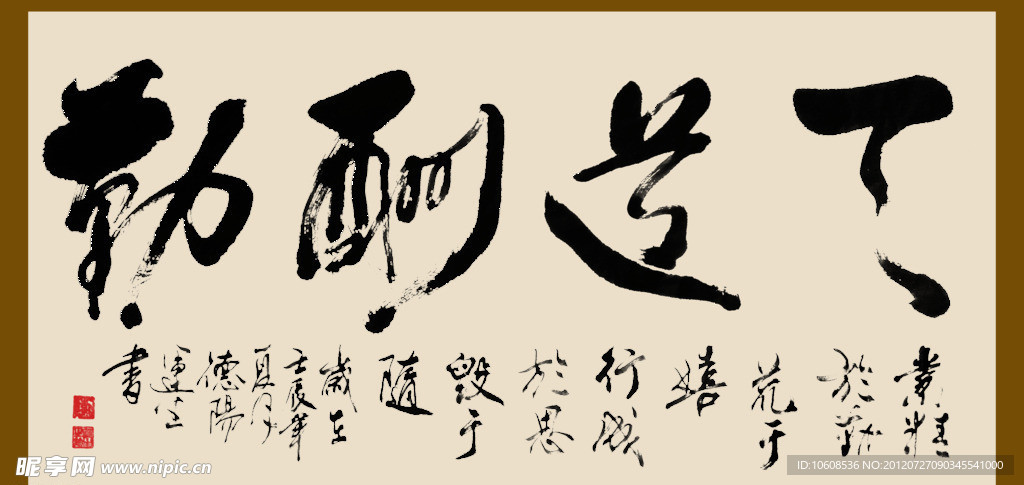 天道酬勤
業精
於勤
荒于
嬉
行成
於思
毁于
隨
歲在
壬辰年
夏月
德陽
運生
書
昵享网 www.nipic.cn
ID:10608536 NO:20120727090345541000